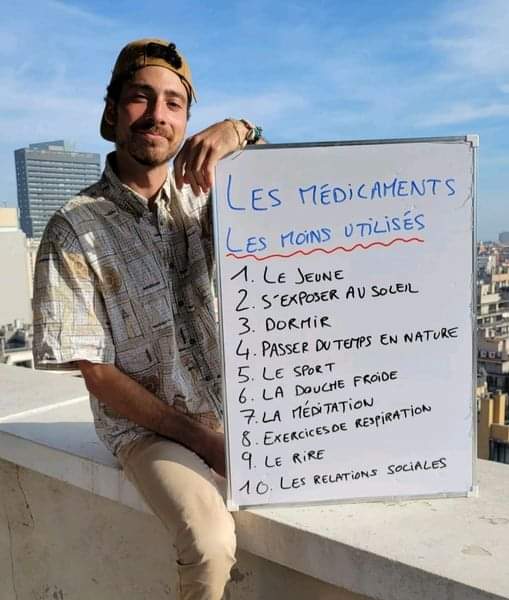 LES MÉDICAMENTS
LES MOINS UTILISÉS
1. LE JEUNE
2. S'EXPOSER AU SOLEIL
3. DORMIR
4. PASSER DU TEMPS EN NATURE
5. LE SPORT
6. LA DOUCHE FROIDE
7. LA MÉDITATION
8. EXERCICES DE RESPIRATION
9. LE RIRE
10. LES RELATIONS SOCIALES